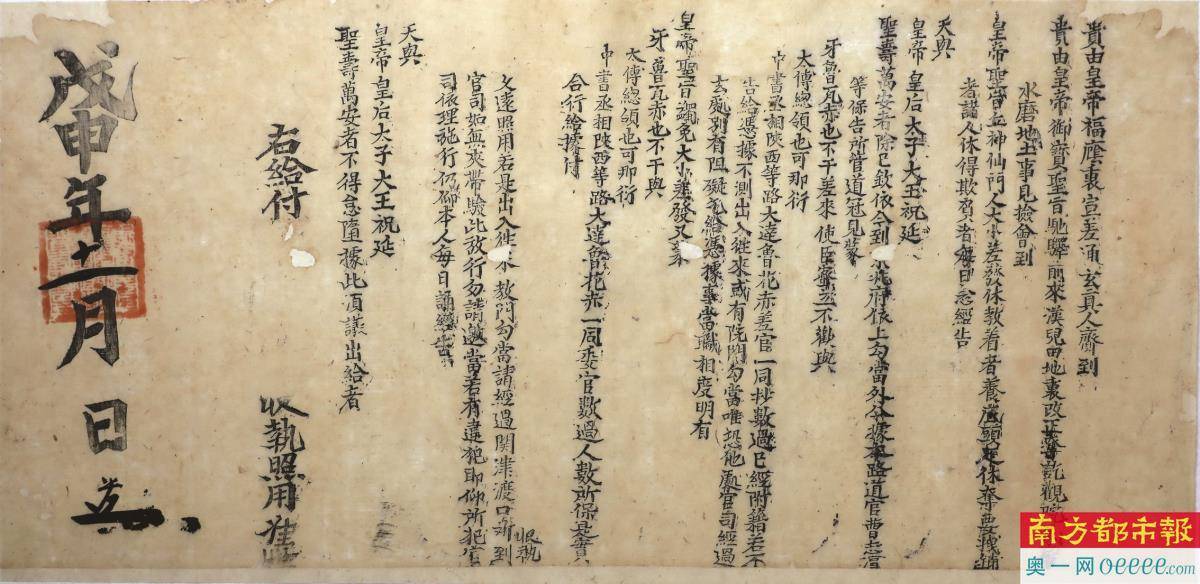 貴由皇帝福廕裏宣差通玄真人齎到
貴由皇帝御寳聖旨馳驛前來漢兒田地裏改正寄託觀院
水磨地土事見撿會到
皇帝聖旨在神仙門人大小差發休教着者養底頭疋休奪要栈鋪
者諸人休得欺負者每日念經告
天與
皇帝皇后太子大王祝延
聖壽萬安者除已欽依今到京兆府依上勾當外分據本路道官曹志冲
等保告所管道冠見蒙
牙魯瓦赤也不干差來使臣寨立不勘與
太傅總領也可那衍
中書丞相陝西等路大達魯花赤差官一同抄數過已經附籍若不
告給憑據不測出入徃來或有院門勾當唯恐他處官司經過
去處別有阻礙乞給憑據事當職相度明有
皇帝聖旨蠲免大小差發又蒙
牙魯瓦赤也不干與
太傅總領也可那衍
中書丞相陝西等路大達魯花赤一同委官數過人數所保是實
合行給據付
收執
文遠照用若是出入徃來教門勾當請經過関津渡口所到
官司如無夾帶驗此放行勿請邀當若有違犯即仰所犯官
司依理施行仍仰本人每日誦經告
天與
皇帝皇后太子大王祝延
聖壽萬安者不得怠墮據此湏議出給者
右給付
收執照用准此
戊申年十一月 日
南方都市報
奥一网 oeeee.com